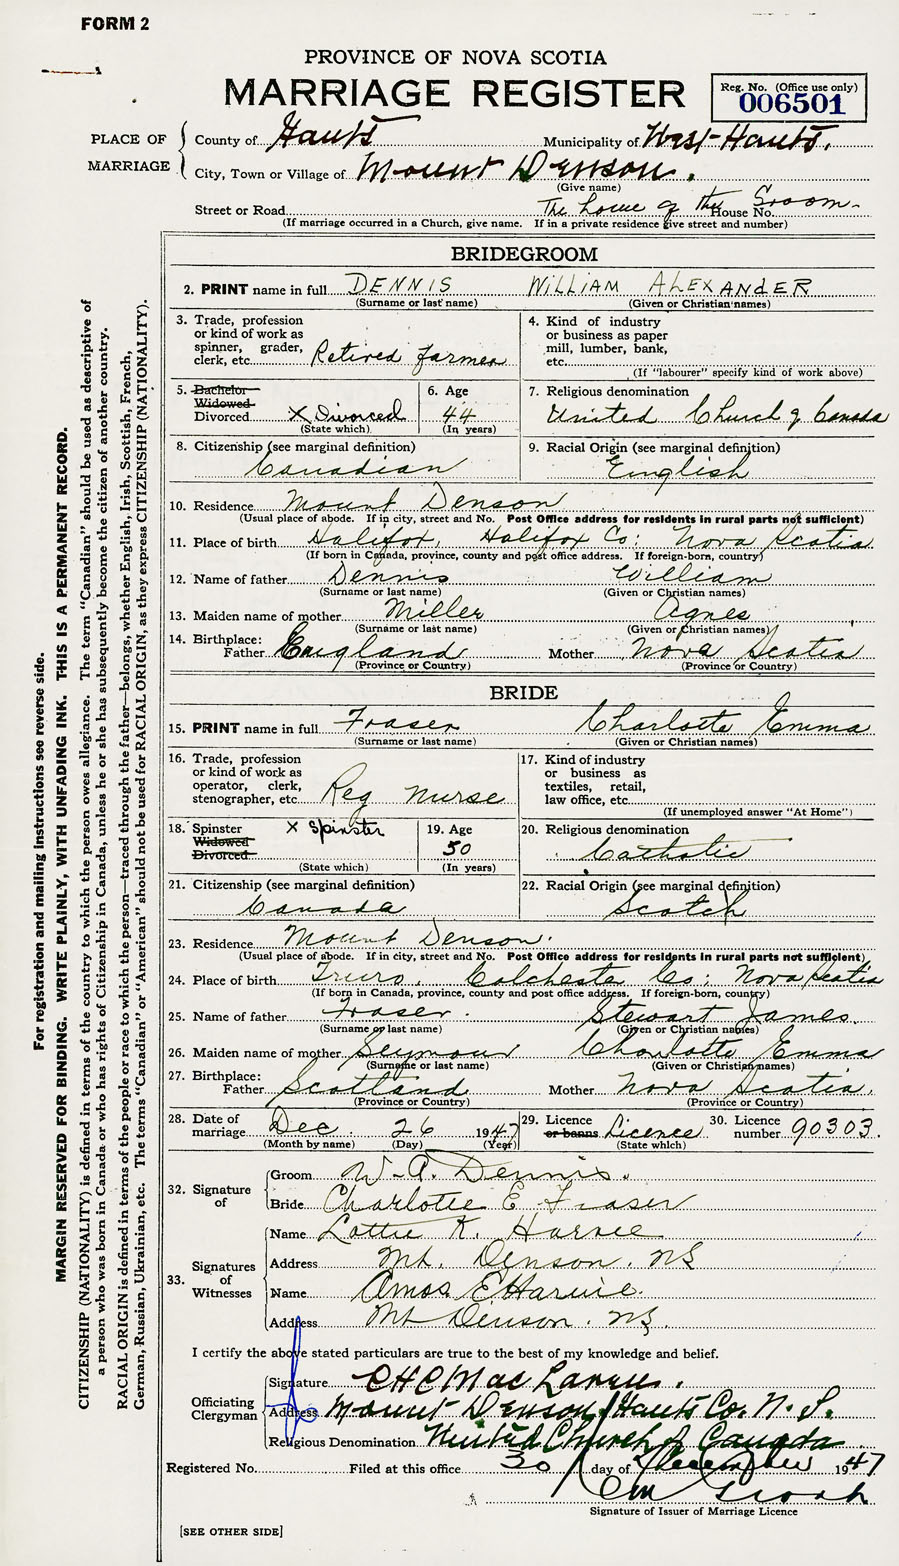 FORM 2
PROVINCE OF NOVA SCOTIA
MARRIAGE REGISTER
Reg. No. (Office use only)
006501
PLACE OF MARRIAGE
County of Hants Municipality of West-Hants.
City, Town or Village of Mount Denson.
(Give name)
Street or Road The home of the House No. Groom.
(If marriage occurred in a Church, give name. If in a private residence give street and number)
BRIDEGROOM
2. PRINT name in full DENNIS WILLIAM ALEXANDER
(Surname or last name) (Given or Christian names)
3. Trade, profession or kind of work as spinner, grader, clerk, etc. Retired farmer
4. Kind of industry or business as paper mill, lumber, bank, etc.
(If "labourer" specify kind of work above)
5. Bachelor
Widowed
Divorced X Divorced
(State which)
6. Age
44
(In years)
7. Religious denomination
United Church of Canada
8. Citizenship (see marginal definition)
Canadian
9. Racial Origin (see marginal definition)
English
10. Residence Mount Denson
(Usual place of abode. If in city, street and No. Post Office address for residents in rural parts not sufficient)
11. Place of birth Halifax, Halifax Co; Nova Scotia
(If born in Canada, province, county and post office address. If foreign-born, country)
12. Name of father Dennis William
(Surname or last name) (Given or Christian names)
13. Maiden name of mother Miller Agnes
(Surname or last name) (Given or Christian names)
14. Birthplace:
Father England Mother Nova Scotia
(Province or Country) (Province or Country)
BRIDE
15. PRINT name in full Fraser Charlotte Emma
(Surname or last name) (Given or Christian names)
16. Trade, profession or kind of work as operator, clerk, stenographer, etc. Reg nurse
17. Kind of industry or business as textiles, retail, law office, etc.
(If unemployed answer "At Home")
18. Spinster X Spinster
Widowed
Divorced
(State which)
19. Age
50
(In years)
20. Religious denomination
Catholic
21. Citizenship (see marginal definition)
Canada
22. Racial Origin (see marginal definition)
Scotch
23. Residence Mount Denson.
(Usual place of abode. If in city, street and No. Post Office address for residents in rural parts not sufficient)
24. Place of birth Truro, Colchester Co; Nova Scotia
(If born in Canada, province, county and post office address. If foreign-born, country)
25. Name of father Fraser. Stewart James.
(Surname or last name) (Given or Christian names)
26. Maiden name of mother Seymour Charlotte Emma
(Surname or last name) (Given or Christian names)
27. Birthplace:
Father Scotland Mother Nova Scotia.
(Province or Country) (Province or Country)
28. Date of marriage Dec. 26 1947
(Month by name) (Day) (Year)
29. Licence or banns Licence
(State which)
30. Licence number 90303.
32. Signature of
Groom W. A. Dennis.
Bride Charlotte E Fraser
33. Signatures of Witnesses
Name Lottie K. Harvie
Address Mt. Denson. NS
Name Amos E Harvie.
Address Mt Denson. NS.
I certify the above stated particulars are true to the best of my knowledge and belief.
Officiating Clergyman
Signature C H C MacLaren.
Address Mount Denson, Hants Co. N. S.
Religious Denomination United Church of Canada
Registered No. Filed at this office 30 day of December 1947
Signature of Issuer of Marriage Licence
[SEE OTHER SIDE]
For registration and mailing instructions see reverse side.
MARGIN RESERVED FOR BINDING. WRITE PLAINLY, WITH UNFADING INK. THIS IS A PERMANENT RECORD.
CITIZENSHIP (NATIONALITY) is defined in terms of the country to which the person owes allegiance. The term "Canadian" should be used as descriptive of
a person who was born in Canada or who has rights of Citizenship in Canada, unless he or she has subsequently become the citizen of another country.
RACIAL ORIGIN is defined in terms of the people or race to which the person—traced through the father—belongs, whether English, Irish, Scottish, French,
German, Russian, Ukrainian, etc. The terms "Canadian" or "American" should not be used for RACIAL ORIGIN, as they express CITIZENSHIP (NATIONALITY).